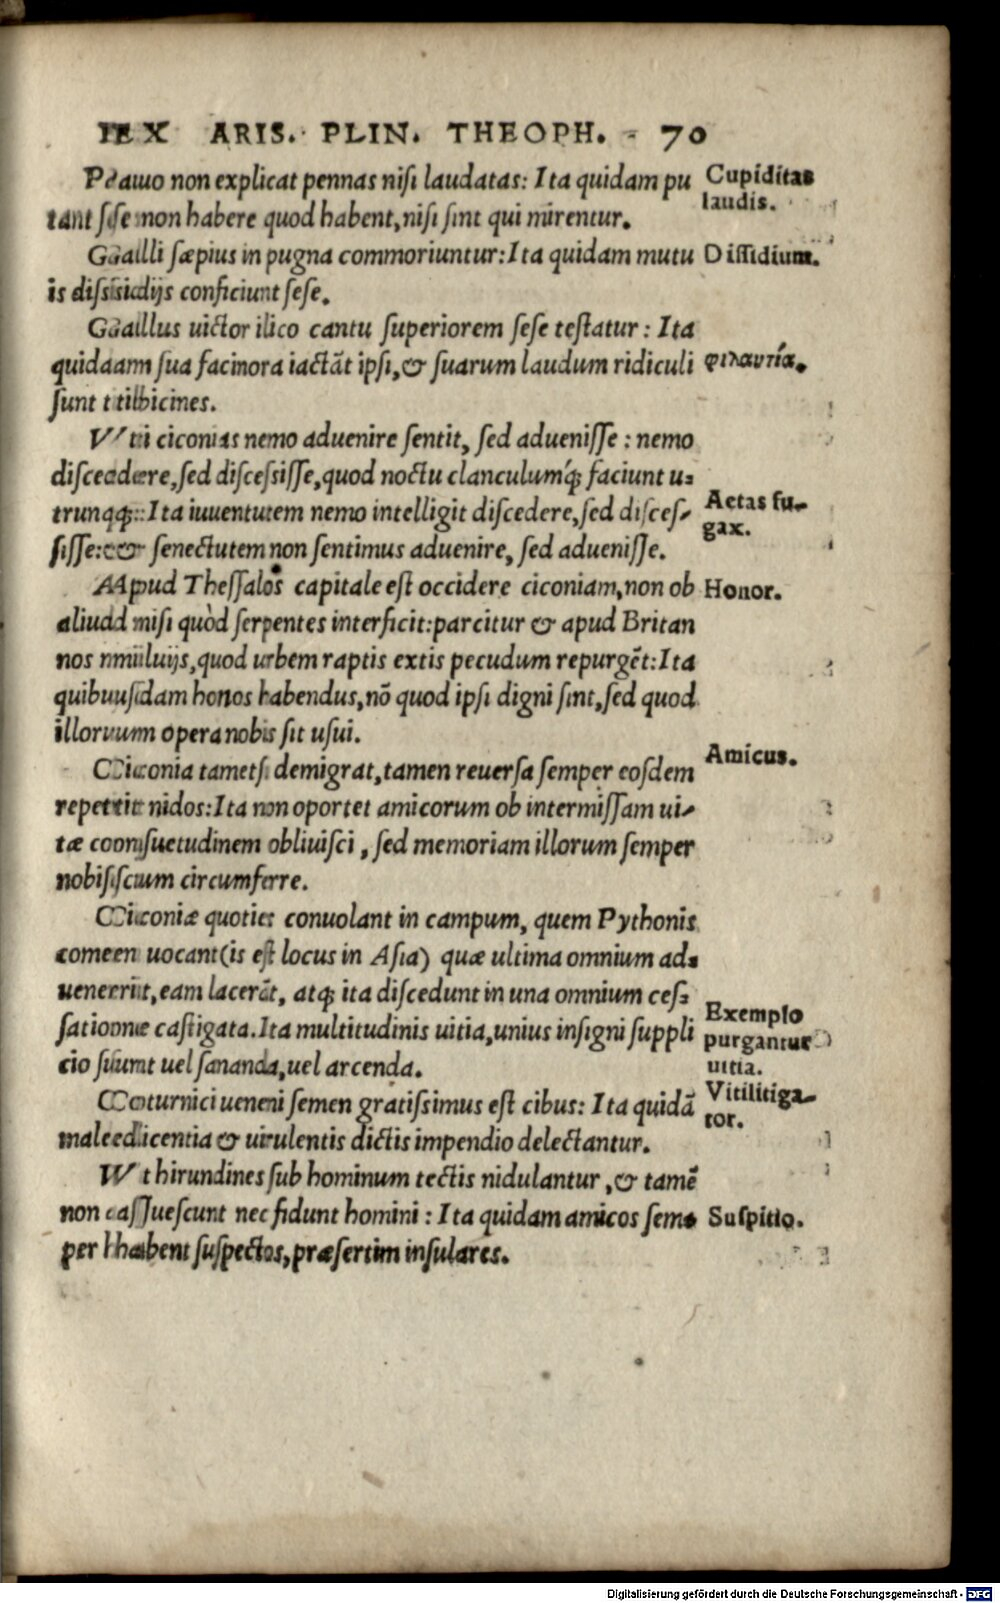 EX ARIS. PLIN. THEOPH. 70
Pauo non explicat pennas nisi laudatas: Ita quidam pu
tant sese non habere quod habent, nisi sint qui mirentur.
Cupiditas
laudis.
Galli sæpius in pugna commoriuntur: Ita quidam mutu
is dissidijs conficiunt sese.
Dissidium.
Gallus uictor ilico cantu superiorem sese testatur: Ita
quidam sua facinora iactāt ipsi, & suarum laudum ridiculi
sunt tibicines.
φιλαυτία.
Vti ciconias nemo aduenire sentit, sed aduenisse: nemo
discedere, sed discessisse, quod noctu clanculumq́; faciunt u-
trunq;: Ita iuuentutem nemo intelligit discedere, sed disces-
sisse: & senectutem non sentimus aduenire, sed aduenisse.
Aetas fu-
gax.
Apud Thessalos capitale est occidere ciconiam, non ob
aliud nisi quòd serpentes interficit: parcitur & apud Britan
nos miluijs, quod urbem raptis extis pecudum repurgēt: Ita
quibusdam honos habendus, nō quod ipsi digni sint, sed quod
illorum opera nobis sit usui.
Honor.
Ciconia tametsi demigrat, tamen reuersa semper eosdem
repetit nidos: Ita non oportet amicorum ob intermissam ui-
tæ consuetudinem obliuisci, sed memoriam illorum semper
nobiscum circumferre.
Amicus.
Ciconiæ quoties conuolant in campum, quem Pythonis
comen uocant (is est locus in Asia) quæ ultima omnium ad-
uenerit, eam lacerāt, atq; ita discedunt in una omnium ces-
satione castigata. Ita multitudinis uitia, unius insigni suppli
cio sunt uel sananda, uel arcenda.
Exemplo
purgantur
uitia.
Coturnici ueneni semen gratissimus est cibus: Ita quidā
maledicentia & uirulentis dictis impendio delectantur.
Vitilitiga-
tor.
Vt hirundines sub hominum tectis nidulantur, & tamē
non assuescunt nec fidunt homini: Ita quidam amicos sem-
per habent suspectos, præsertim insulares.
Suspitio.
Digitalisierung gefördert durch die Deutsche Forschungsgemeinschaft - DFG